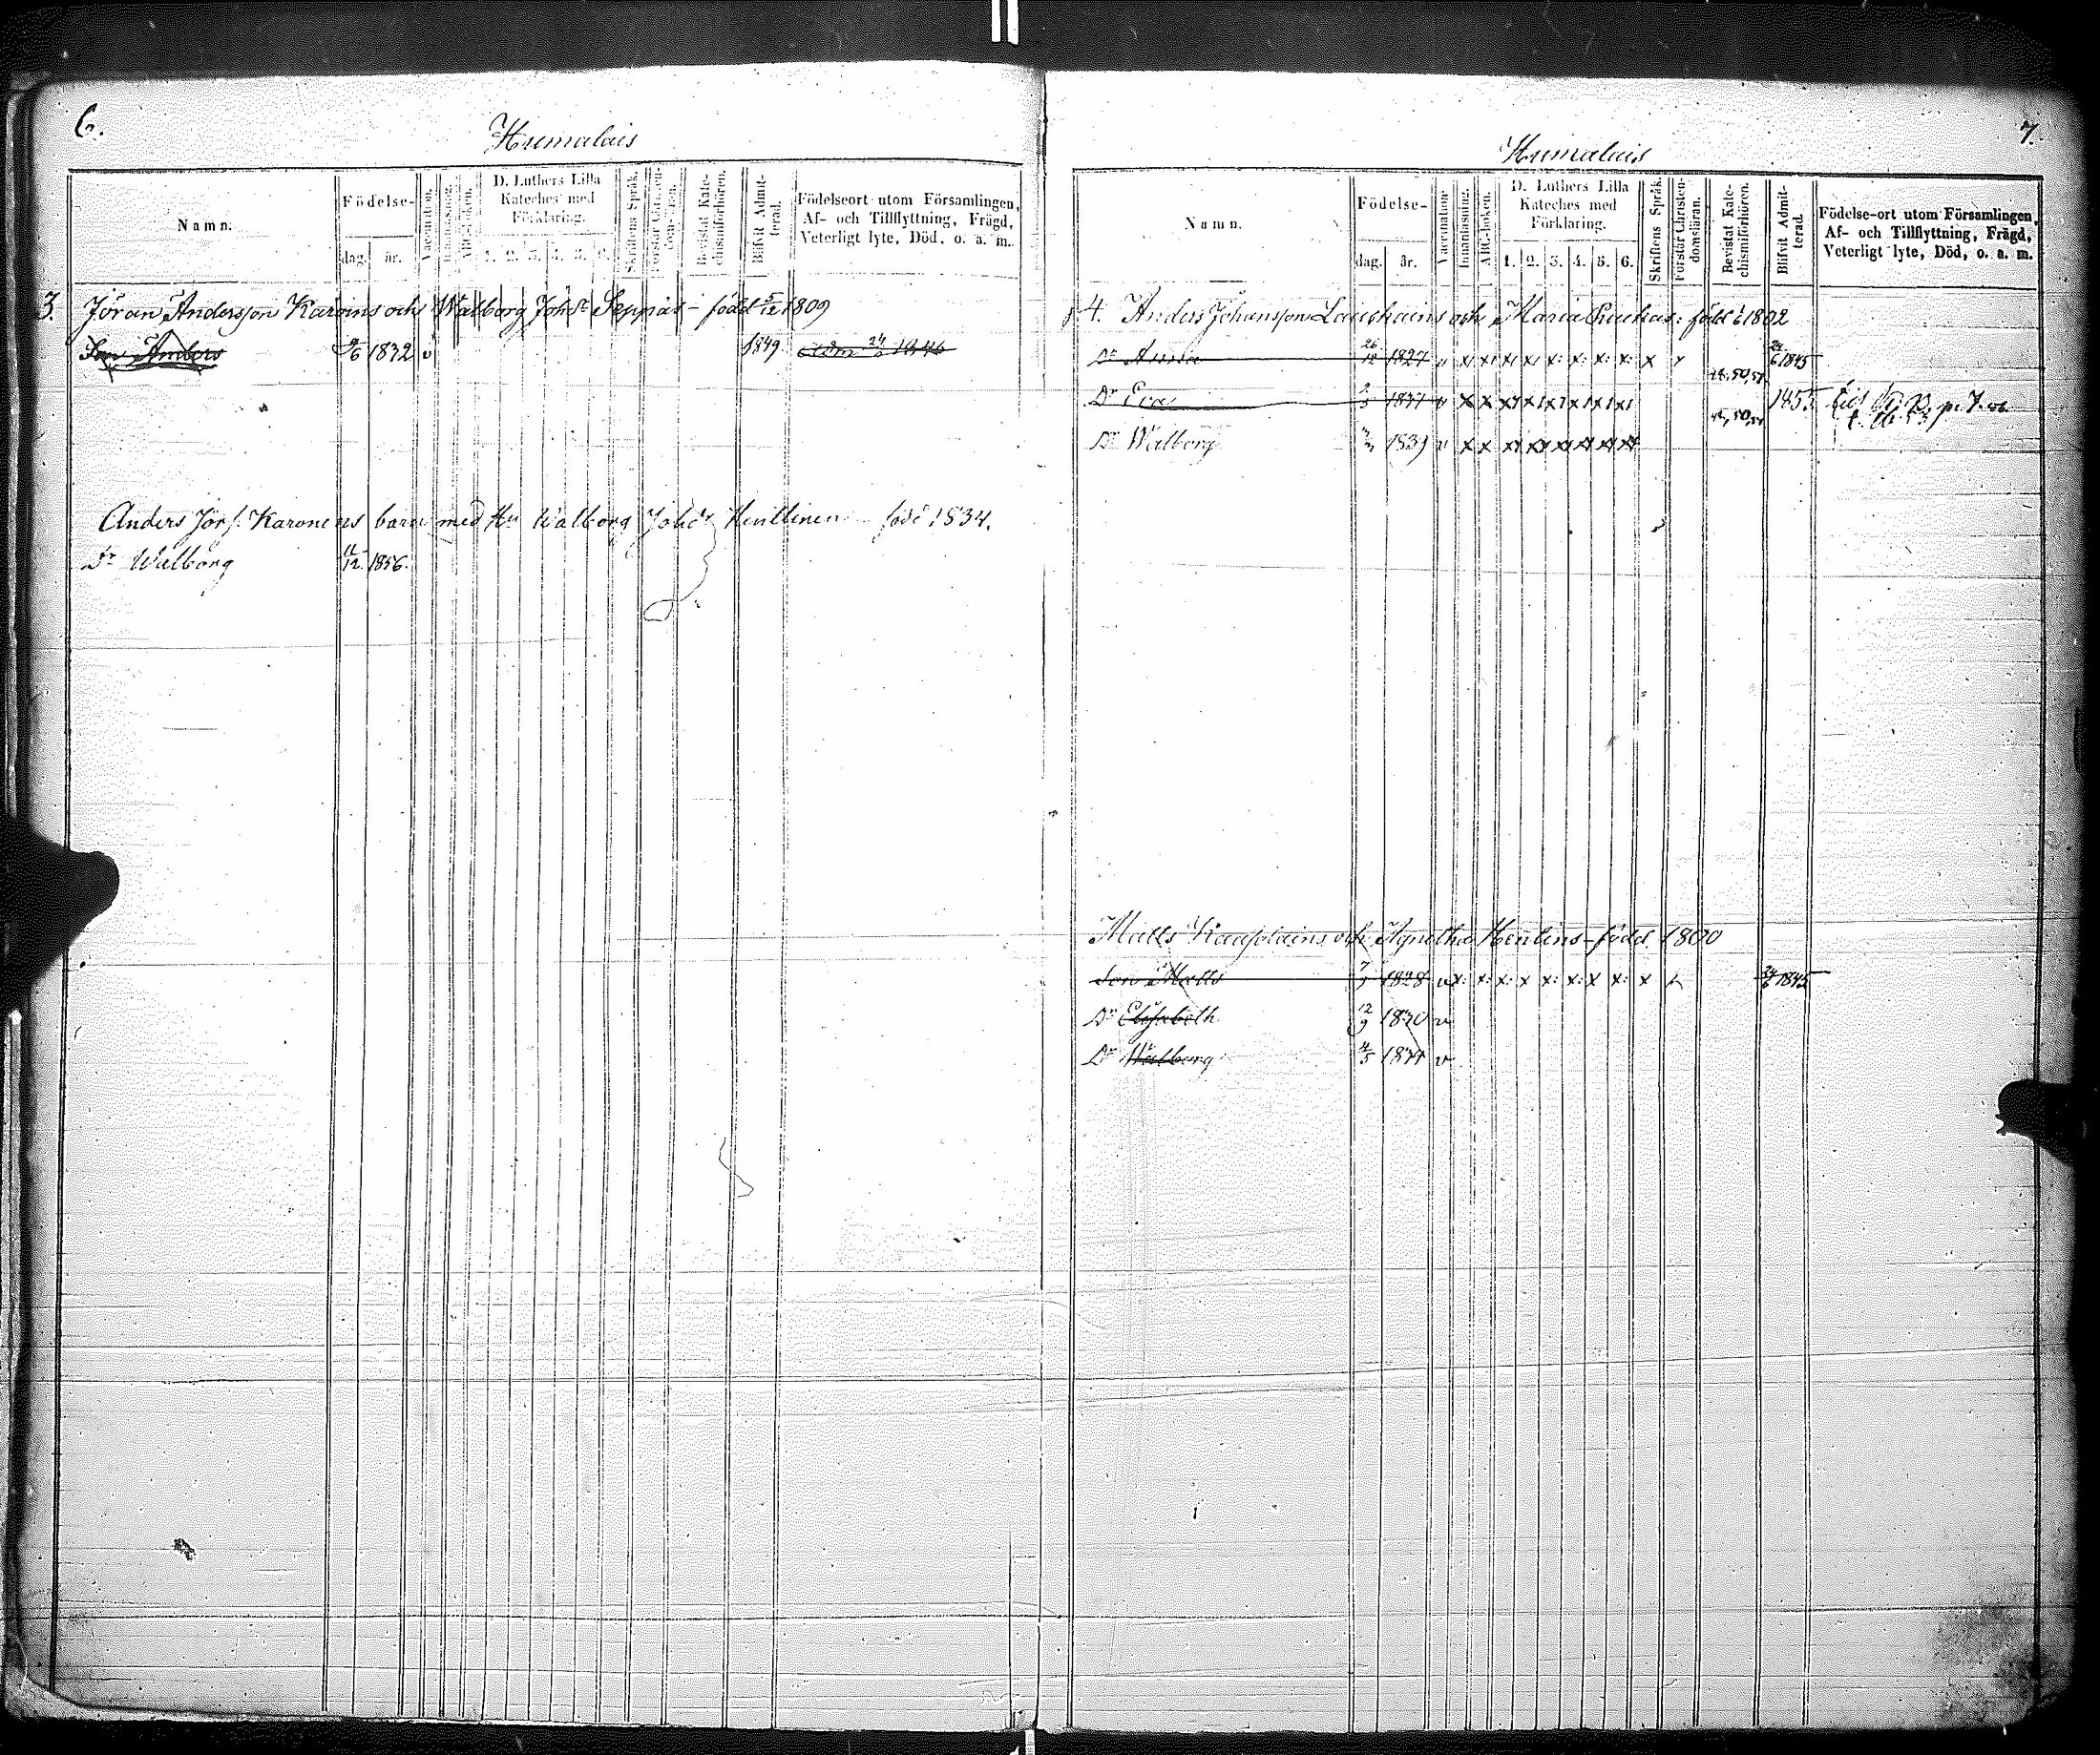 6.
Humalais
Namn.
Födelse-
dag. år.
Vaccination.
Innanläsning.
ABC-boken.
D. Luthers Lilla Kateches med Förklaring.
1. 2. 3. 4. 5. 6.
Skriftens Språk.
Förstår Christendomsläran.
Bevistat Katechismiförhören.
Blifvit Admitterad.
Födelseort utom Församlingen,
Af- och Tillflyttning, Frägd,
Veterligt lyte, Död. o. a. m.
3. Jöran Andersson Karoins och Walborg Johsdr Seppäs – född 5/12 1809
Son Anders 9/6 1832 v 1849. adm 24/6 1846
Anders Jörs. Karonens barn med Hu Walborg Johdr Henttinen född 1834.
Dr Walborg 11/12 1856.
7.
Humalais
Namn.
Födelse-
dag. år.
Vaccination.
Innanläsning.
ABC-boken.
D. Luthers Lilla Kateches med Förklaring.
1. 2. 3. 4. 5. 6.
Skriftens Språk.
Förstår Christendomsläran.
Bevistat Katechismiförhören.
Blifvit Admitterad.
Födelse-ort utom Församlingen,
Af- och Tillflyttning, Frägd,
Veterligt lyte, Död, o. a. m.
4. Anders Johansson och Maria född 1802
Dr Anna 26/12 1827 v x x x x x x x x x 24/6 1845
Dr Eva v x x x x x x x x 50, 1855 p. 7.
Dr Walborg 1839 v x x x x x x x x
Matts och Agnetha Henlins – född 1800
Son Matts 1828 v x x x x x x x x x 24/6 1845
Dr Elisabeth 12/9 1830 v
Dr Walborg 4/5 v